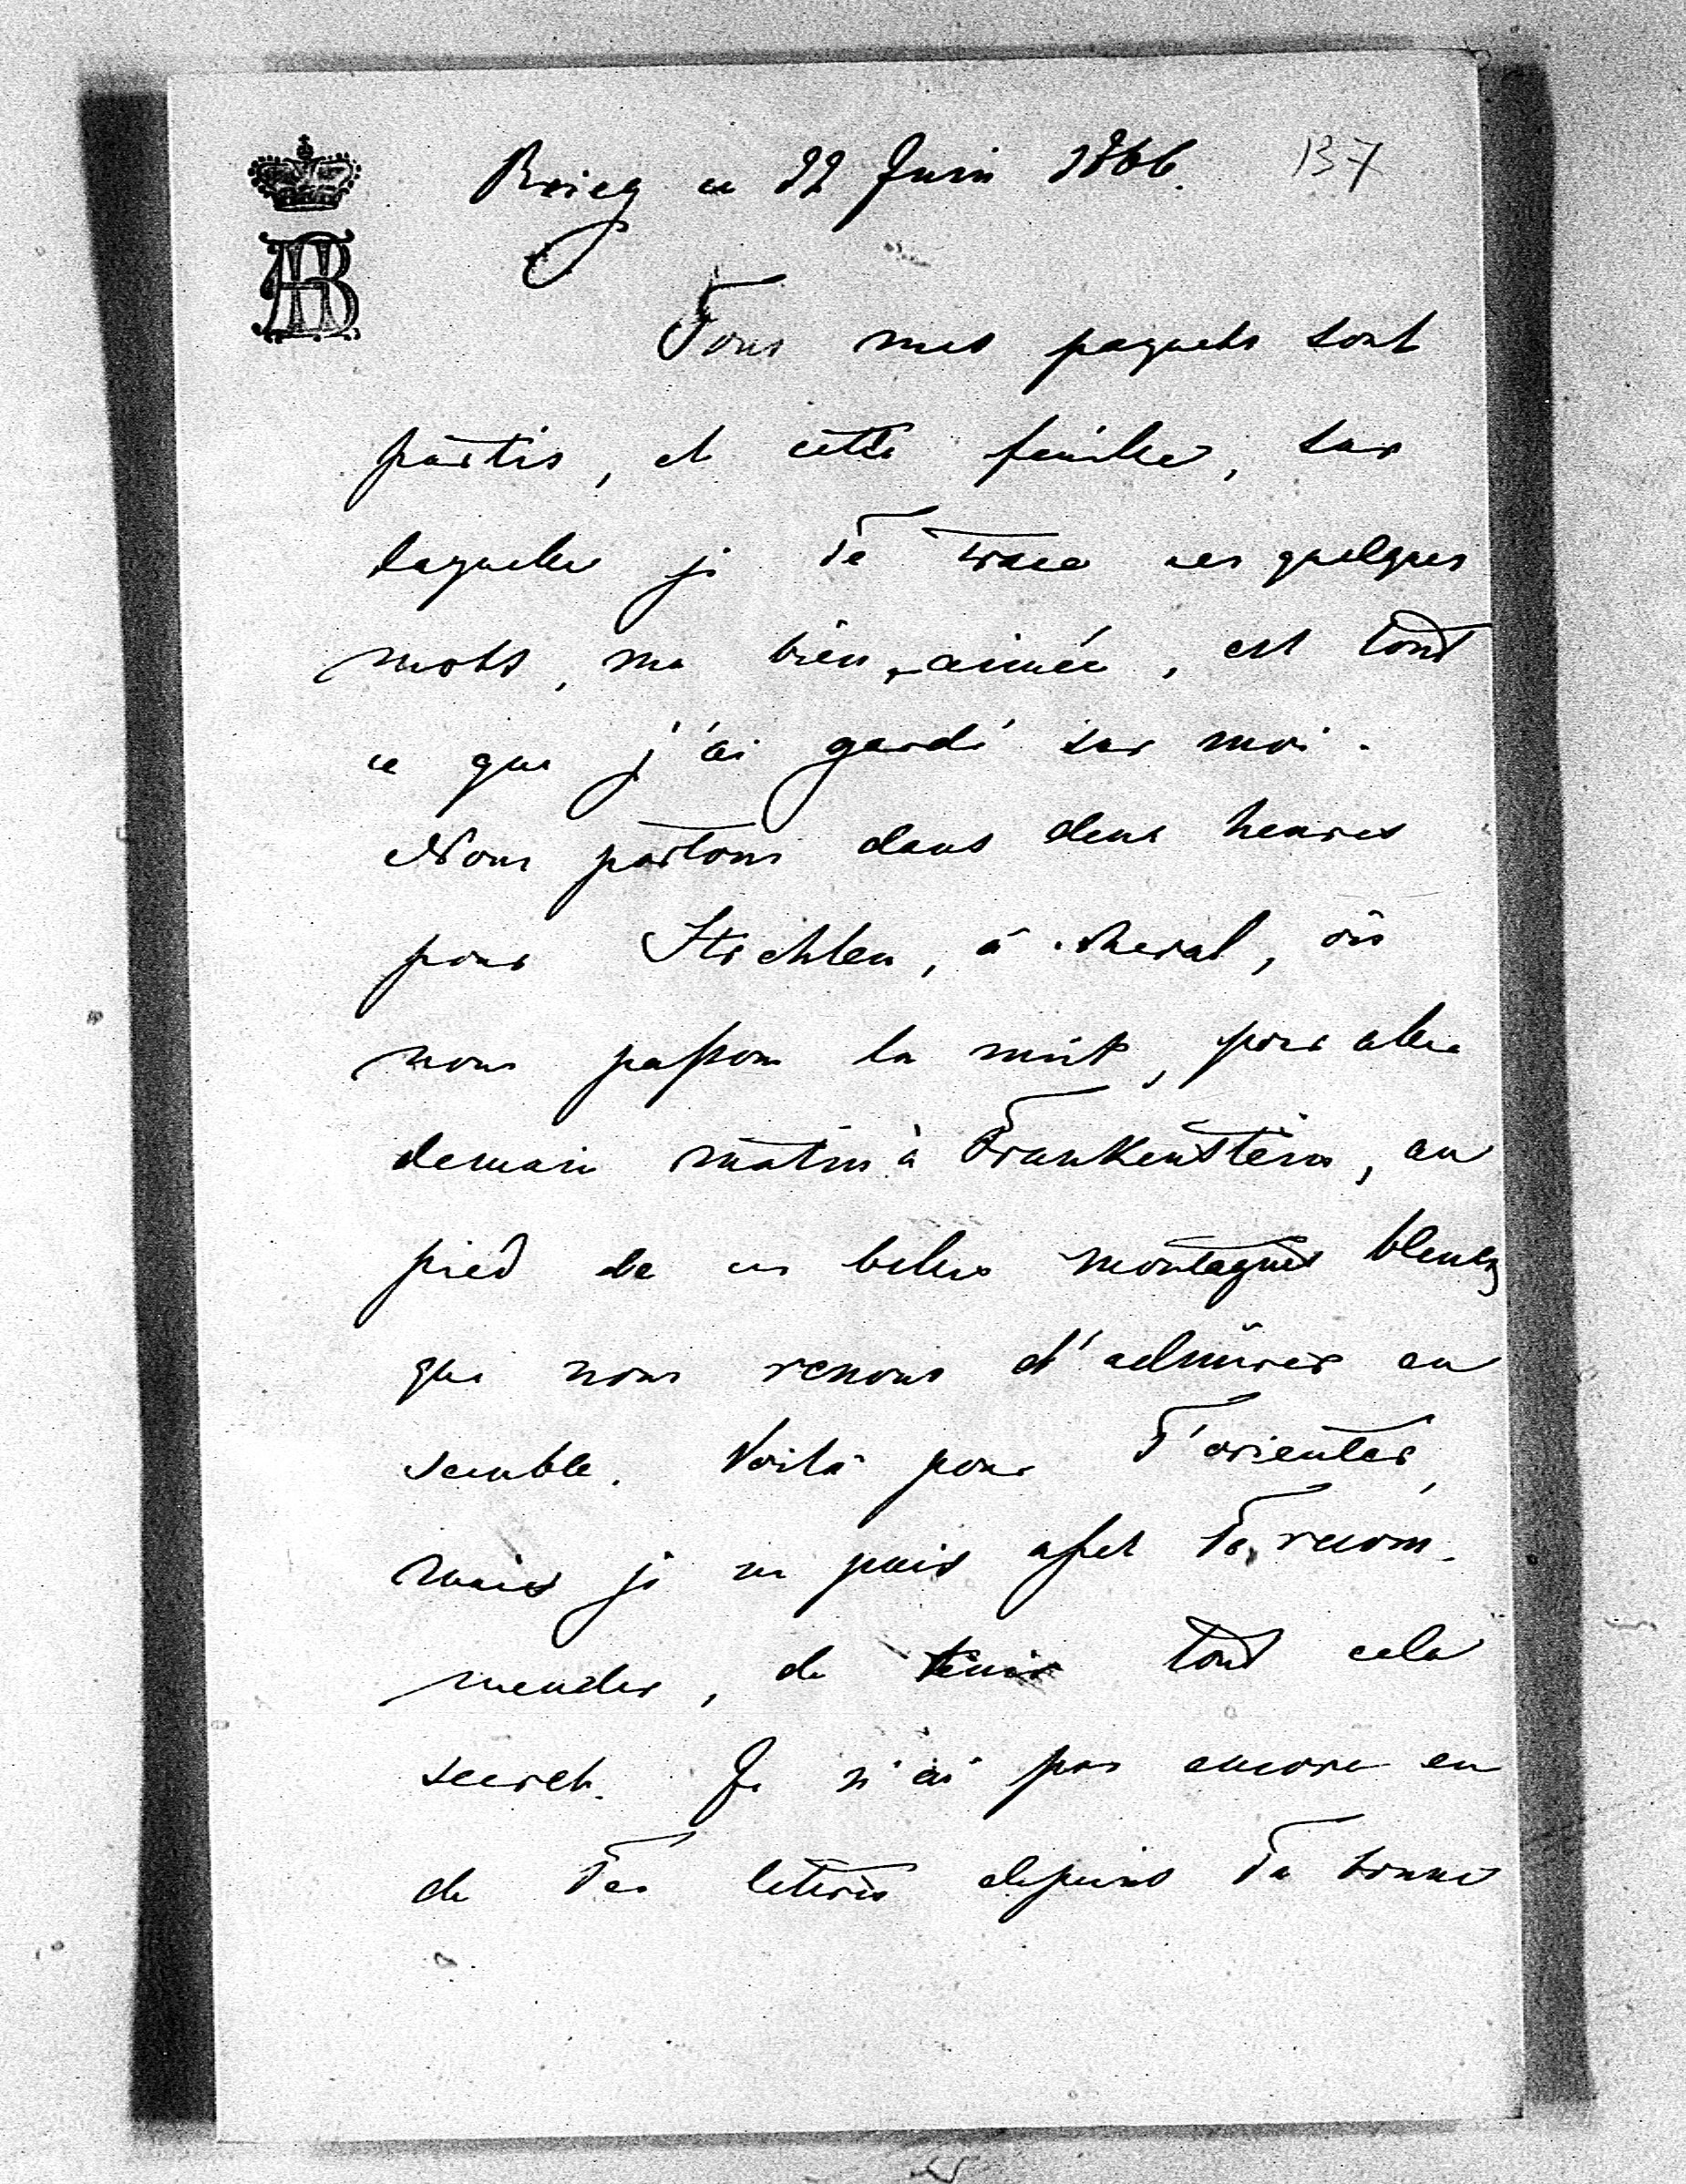 Brieg ce 22 Juin 1866. 137
AB
Tous mes paquets sont
partis, et cette feuille, sur
laquelle je Te trace ces quelques
mots, ma bien-aimée, est tout
ce que j'ai gardé sur moi.
Nous partons dans deux heures
pour Strehlen, à cheval, où
nous passons la nuit, pour aller
demain matin à Frankenstein, au
pied de ces belles montagnes bleues
que nous venons d'admirer en
semble. Voilà pour T'orienter,
mais je ne puis assez Te recom-
mender, de tenir tout cela
secret. Je n'ai pas encore eu
de Tes lettres depuis Ta bonne